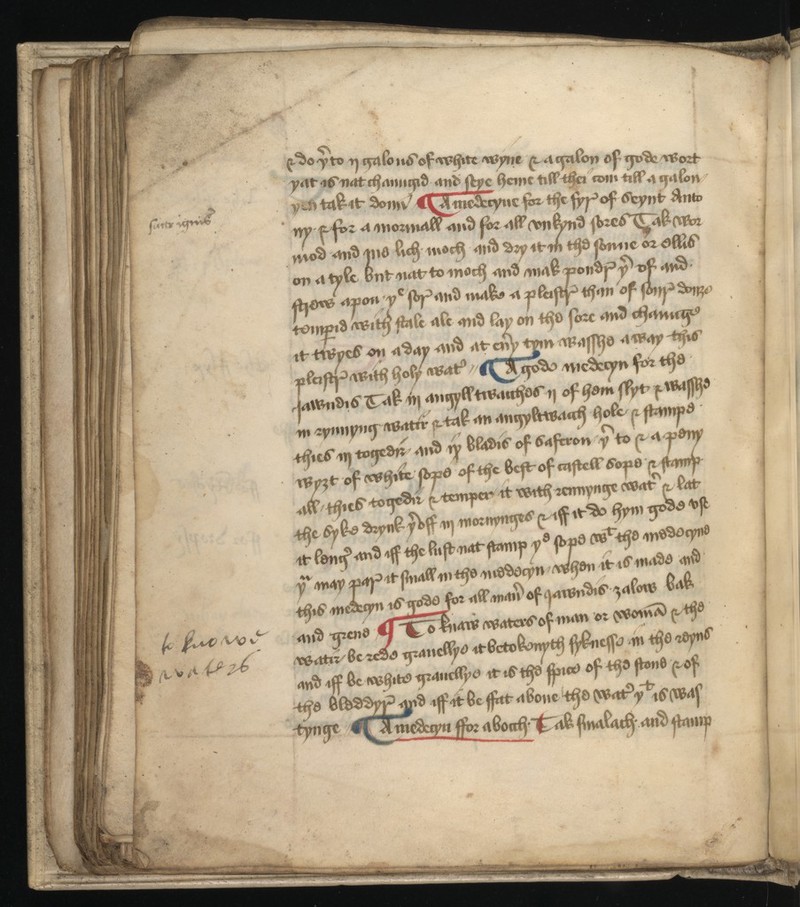 & do yͬto ij galons of white wyne & a galon of gode wort
yat is nat chaungid and stye heme till thei com till a galon
yen tak it doun ¶ A medecyne for the fyrͤ of seynt Anto
sacer ignis
ny & for a mormall and for all vnkynd sores Tak wor
mod and lich moch and dry it in the sonne or ellis
on a tyle but nat to moch and mak poudrͤ yͬ of and
strew apon yᵉ sorͤ and make a pleistrͤ than of sourͤ douze
temp̲id with stale ale and lay on the sore and chaunge
it twyes on a day and at eu̾y tym wasshe away this
pleistrͤ with holy wat̾ ¶ A gode medecyn for the
Jawndis Tak iij angyll twacches ij of hem slyt & wasshe
in rynnyng watir & tak an angyltwacch hole & stampe
thies iij togedir and ix bladis of saferon yͬ to & a peny
wyzt of white sope of the best of castell sope & stamp
all thies togedir & temper it with rennynge wat̾ & lat
the syke drynk yͬoff iij mornynges & iff it do hym gode vse
it leng̾ and iff the lust nat stamp yᵉ sope wᵗ the medecyne
yͧ may parͤ it small in the medecyn when it is made and
this medecyn is gode for all man̾ of jawndis zalow blak
and grene ¶ To knaw waters of man or womā & the
to knowe
waters
watir be rede gravellye it betokenyth syknesse in the reyns
and iff be white gravellye it is the spice of the stone & of
the bleddyrͤ and iff it be ffat above the wat̾ yᵗ is was
tynge ¶ A medecyn ffor a bocch Tak smalach and stamp